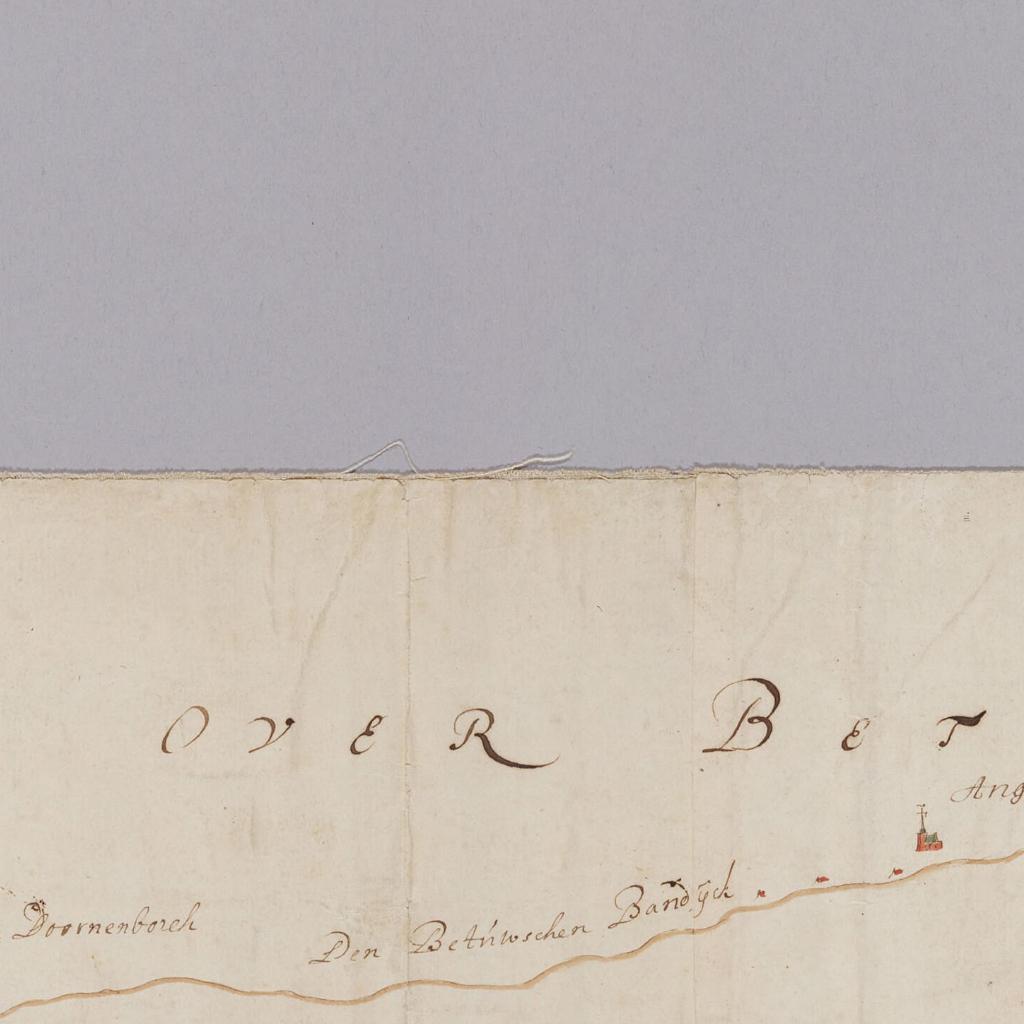 OVER BET
Ang
Doornenborch
Den Betúwschen Bandÿck